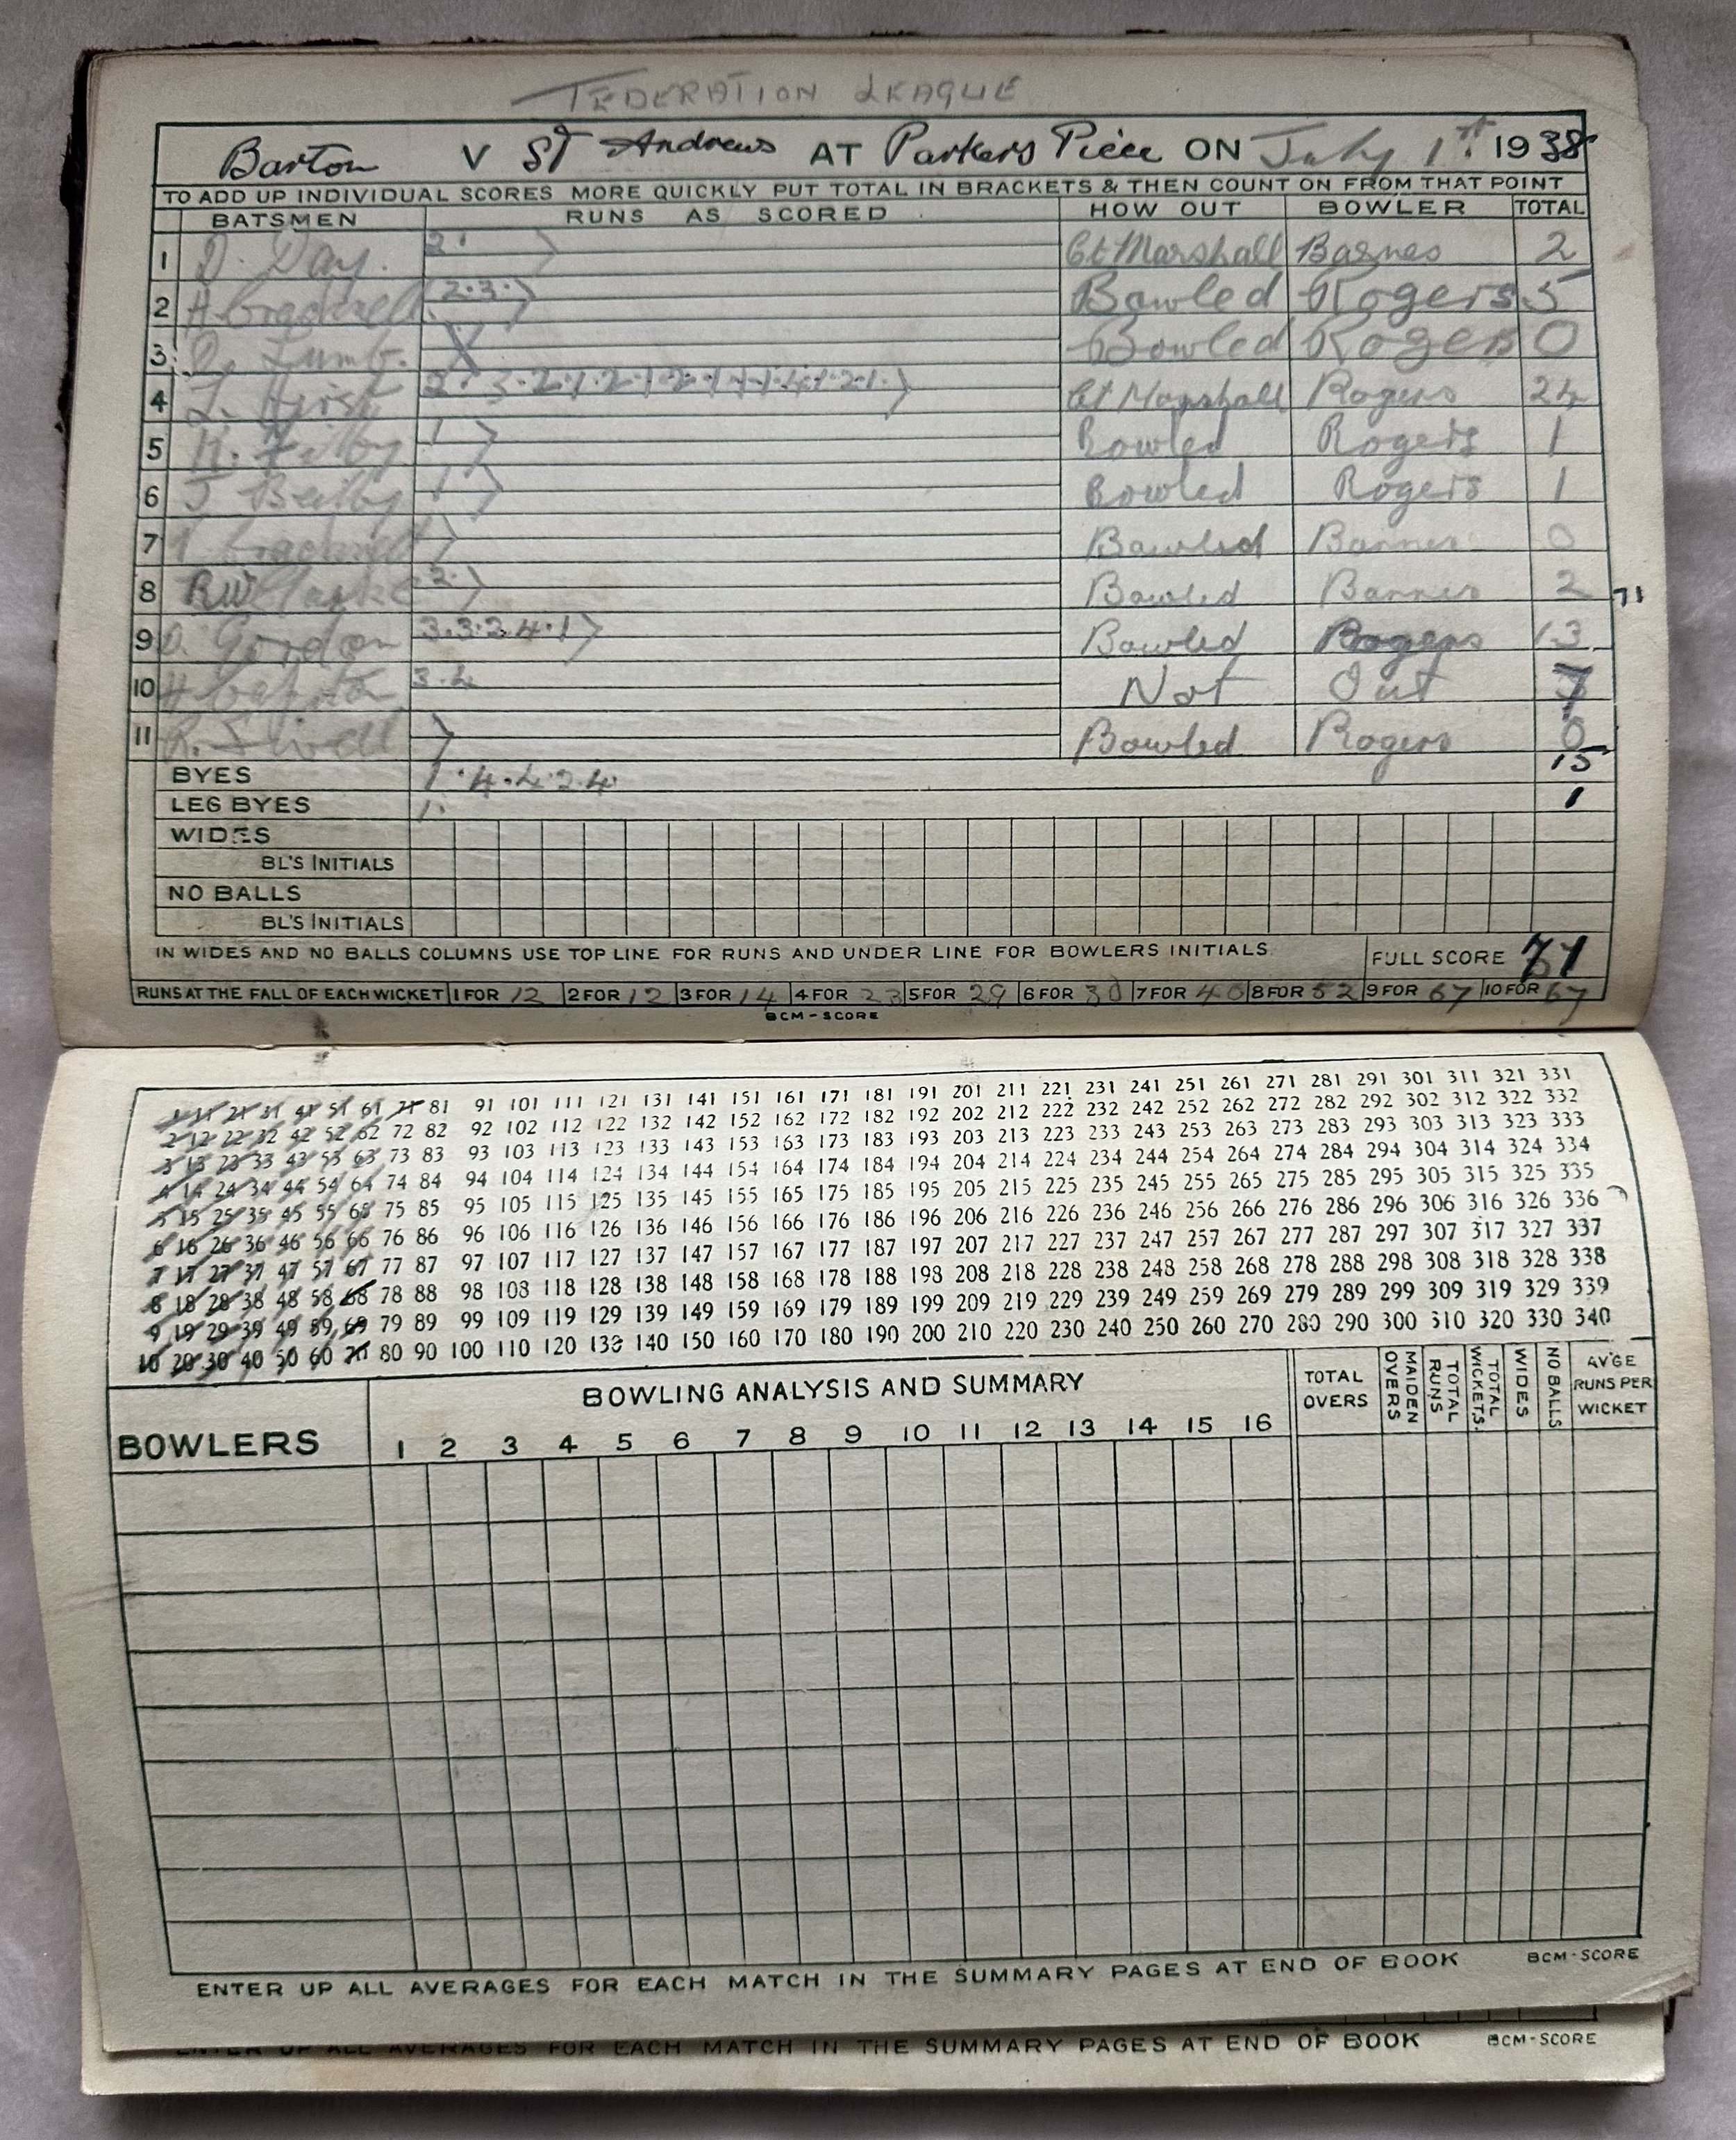 FEDERATION LEAGUE
Barton V St Andrews AT Parkers Piece ON July 1st. 1938
TO ADD UP INDIVIDUAL SCORES MORE QUICKLY PUT TOTAL IN BRACKETS & THEN COUNT ON FROM THAT POINT
BATSMEN RUNS AS SCORED HOW OUT BOWLER TOTAL
1 D. Day. 2· Ct Marshall Barnes 2
2 H. 2·3· Bowled Rogers 5
3 Lumb. Bowled Rogers 0
4 Hirst 2· 3·2·1·2·1·2·1·1·1·4·1·2·1· Ct Marshall Rogers 24
5 1 Bowled Rogers 1
6 J Beilby 1 Bowled Rogers 1
7 Bowled Barnes 0
8 RW 2· Bowled Barnes 2 71
9 D. Gordon 3·3·2·4·1 Bowled Rogers 13
10 3·4 Not Out 7
11 R. Bowled Rogers 0
BYES 1·4·4·2·4· 15
LEG BYES 1· 1
WIDES
BL'S INITIALS
NO BALLS
BL'S INITIALS
IN WIDES AND NO BALLS COLUMNS USE TOP LINE FOR RUNS AND UNDER LINE FOR BOWLERS INITIALS FULL SCORE 71
RUNS AT THE FALL OF EACH WICKET 1 FOR 12 2 FOR 12 3 FOR 14 4 FOR 23 5 FOR 29 6 FOR 30 7 FOR 40 8 FOR 52 9 FOR 67 10 FOR 67
BCM-SCORE
1 11 21 31 41 51 61 71 81 91 101 111 121 131 141 151 161 171 181 191 201 211 221 231 241 251 261 271 281 291 301 311 321 331
2 12 22 32 42 52 62 72 82 92 102 112 122 132 142 152 162 172 182 192 202 212 222 232 242 252 262 272 282 292 302 312 322 332
3 13 23 33 43 53 63 73 83 93 103 113 123 133 143 153 163 173 183 193 203 213 223 233 243 253 263 273 283 293 303 313 323 333
4 14 24 34 44 54 64 74 84 94 104 114 124 134 144 154 164 174 184 194 204 214 224 234 244 254 264 274 284 294 304 314 324 334
5 15 25 35 45 55 65 75 85 95 105 115 125 135 145 155 165 175 185 195 205 215 225 235 245 255 265 275 285 295 305 315 325 335
6 16 26 36 46 56 66 76 86 96 106 116 126 136 146 156 166 176 186 196 206 216 226 236 246 256 266 276 286 296 306 316 326 336
7 17 27 37 47 57 67 77 87 97 107 117 127 137 147 157 167 177 187 197 207 217 227 237 247 257 267 277 287 297 307 317 327 337
8 18 28 38 48 58 68 78 88 98 108 118 128 138 148 158 168 178 188 198 208 218 228 238 248 258 268 278 288 298 308 318 328 338
9 19 29 39 49 59 69 79 89 99 109 119 129 139 149 159 169 179 189 199 209 219 229 239 249 259 269 279 289 299 309 319 329 339
10 20 30 40 50 60 70 80 90 100 110 120 130 140 150 160 170 180 190 200 210 220 230 240 250 260 270 280 290 300 310 320 330 340
BOWLERS BOWLING ANALYSIS AND SUMMARY TOTAL OVERS MAIDEN OVERS TOTAL RUNS TOTAL WICKETS. WIDES NO BALLS AV'GE RUNS PER WICKET
1 2 3 4 5 6 7 8 9 10 11 12 13 14 15 16
ENTER UP ALL AVERAGES FOR EACH MATCH IN THE SUMMARY PAGES AT END OF BOOK BCM-SCORE
ENTER UP ALL AVERAGES FOR EACH MATCH IN THE SUMMARY PAGES AT END OF BOOK BCM-SCORE